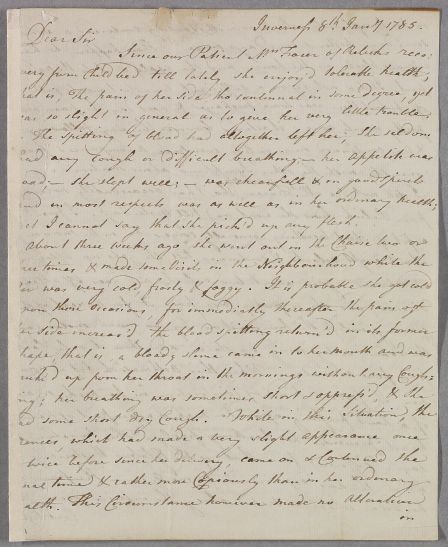 Inverness 8th Jany 1785.
Dear Sir
Since our Patient Mrs Fraser of Relicks reco=
very from Child bed till lately she enjoy'd tolerable health,
that is, The pain of her side tho continual in some degree, yet
was so slight in general as to give her very little trouble.
The Spitting of blood had altogether left her; She seldom
had any Cough or difficult breathing, – her appetite was
good, – she slept well; – was chearfull & in good Spirits
and in most respects was as well as in her ordinary health;
yet I cannot say that she pick'd up any flesh
about three weeks ago she went out in the Chaise two or
three times & made some visits in the Neighbourhood while the
air was very cold, frosty & foggy. It is probable she got cold
upon those Occasions, for immediately thereafter the pain of
her side increas'd the blood spitting return'd in its former
shape, that is, a bloody slime came in to her mouth and was
up from her throat in the mornings without any Cough=
ing; her breathing was sometimes short & oppress'd, & She
had some short dry Cough. While in this Situation, the
which had made a very slight appearance once
or twice before since her delivery came on & Continued the
usual time & rather more Copiously than in her ordinary
health. This Circumstance however made no alteration
in